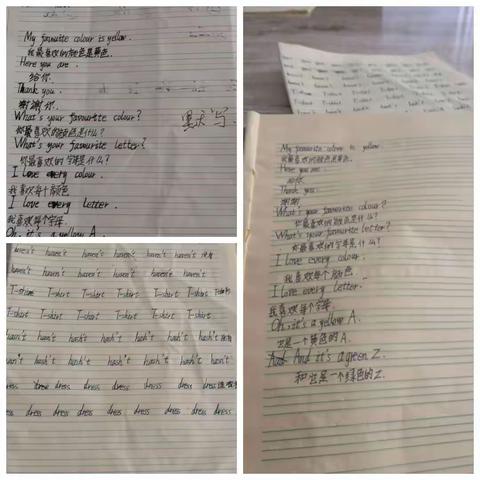 My favourite colour is yellow.
我最喜欢的颜色是黄色.
Here you are.
给你.
Thank you.
谢谢你.
What's your favourite colour?
你最喜欢的颜色是什么?
What's your favourite letter?
你最喜欢的字母是什么?
I love every colour.
我喜欢每个颜色
I love every letter.
我喜欢每个字母.
Oh, it's a yellow A.
默写
haven't haven't haven't haven't haven't haven't 没有
haven't haven't haven't haven't haven't
T-shirt T-shirt T-shirt T-shirt T-shirt T-shirt T恤衫
T-shirt T-shirt T-shirt T-shirt T-shirt T-shirt
hash't hash't hash't hash't hash't hash't hash't 没有
hash't hash't hash't hash't hash't hasn't
dress dress dress dress dress dress dress 连衣裙
dress dress dress dress dress dress dress dress
My favourite colour is yellow.
我最喜欢的颜色是黄色.
Here you are.
给你
Thank you.
谢谢
What's your favourite colour?
你最喜欢的颜色是什么?
What's your favourite letter?
你最喜欢的字母是什么?
I love every colour.
我喜欢每个颜色
I love every letter.
我喜欢每个字母.
Oh, it's a yellow A.
它是一个黄色的A.
And it's a green Z.
和它是一个绿色的Z.